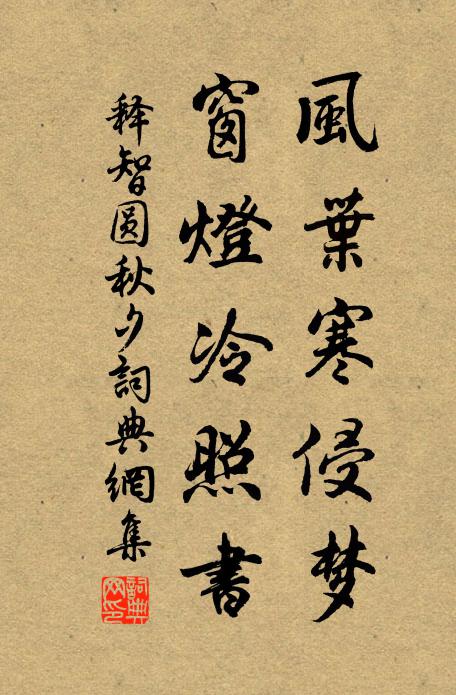 風葉寒侵梦
窗燈冷照書
释智圓秋夕詞典網集
詞典网印